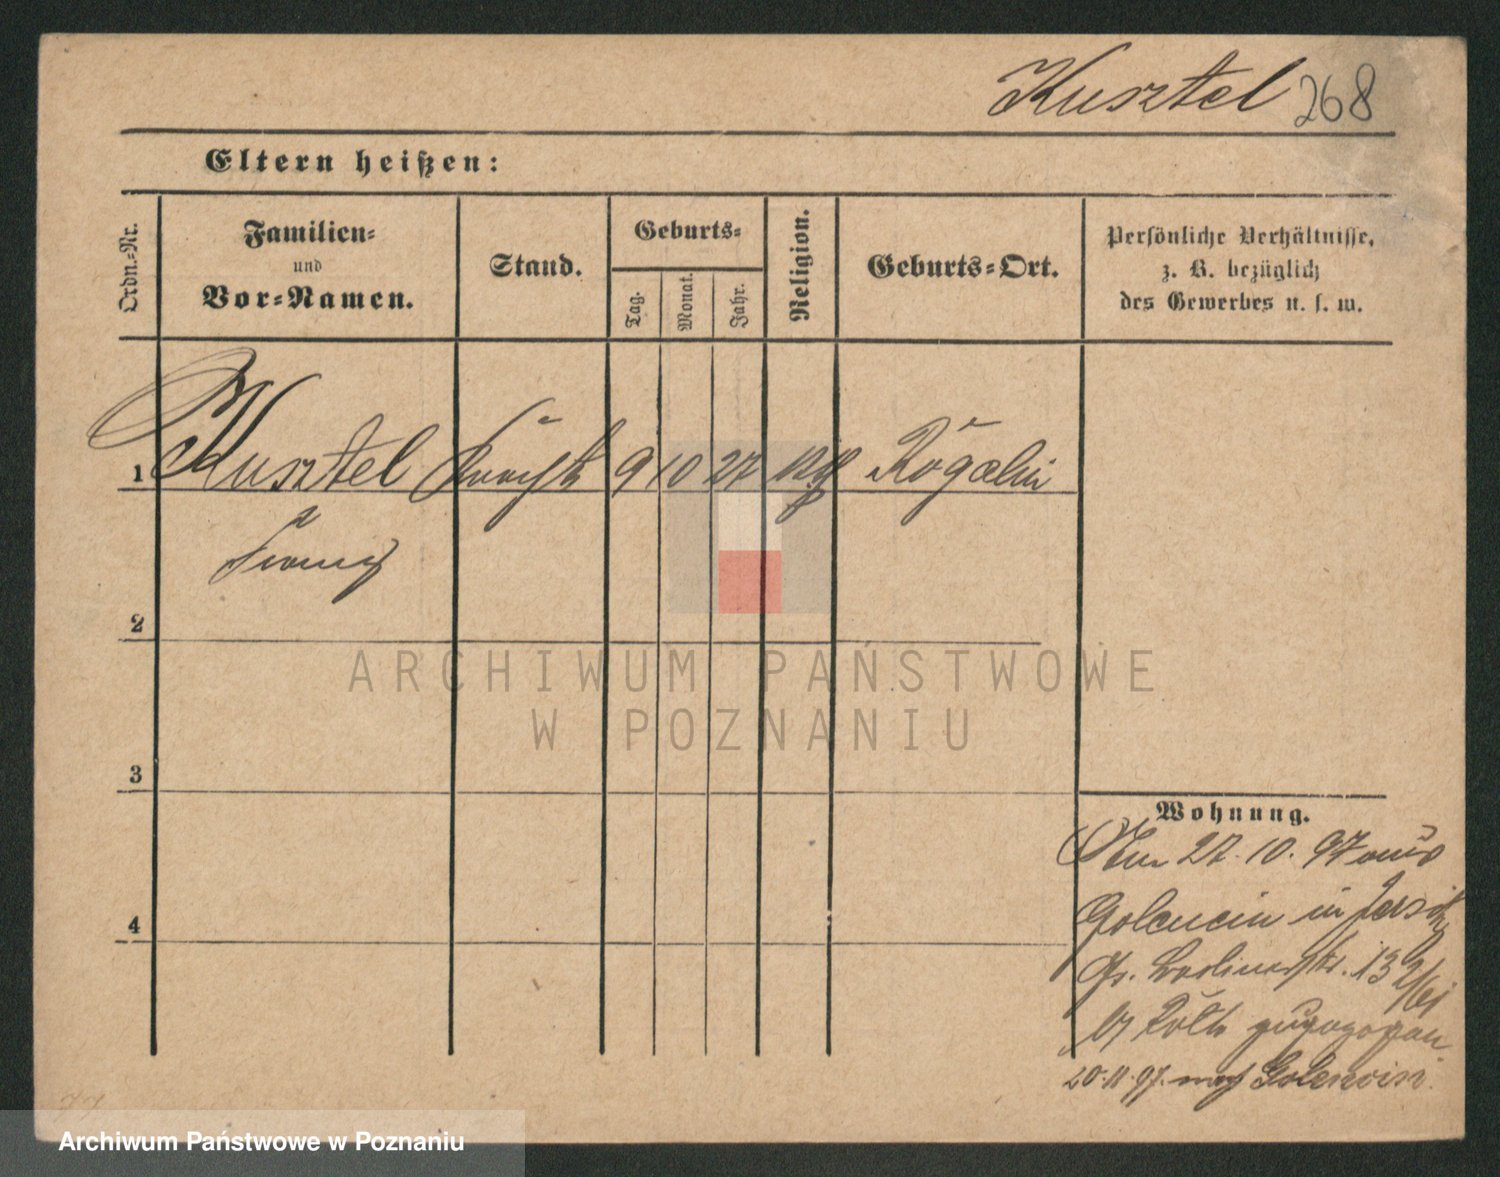 Kusztel 268
Eltern heißen:
Ordn.-Nr.
Familien-
und
Vor-Namen.
Stand.
Geburts-
Tag.
Monat.
Jahr.
Religion.
Geburts-Ort.
Persönliche Verhältnisse,
z. B. bezüglich
des Gewerbes u. s. w.
1 Kusztel Knecht 9 10 27 Rogalin
Franz
2
3
4
Wohnung.
Am 27. 10. 97 aus
Golencin in Jersitz
Gr. Berlinerstr. 13
zugezogen
20.11.97. nach Golencin.
ARCHIWUM PAŃSTWOWE
W POZNANIU
Archiwum Państwowe w Poznaniu